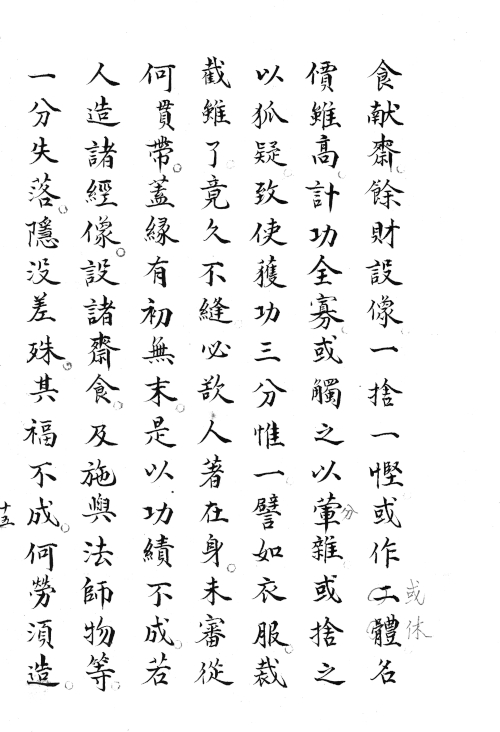 食献齋餘財設像一捨一慳或作工體名
或休
價雖高計功全寡或觸之以葷雜或捨之
分
以狐疑致使獲功三分惟一譬如衣服裁
截雖了竟久不縫必欲人著在身未審從
何貫帶蓋縁有初無末是以功績不成若
人造諸經像設諸齋食及施與法師物等
一分失落隱没差殊其福不成何勞須造
十五